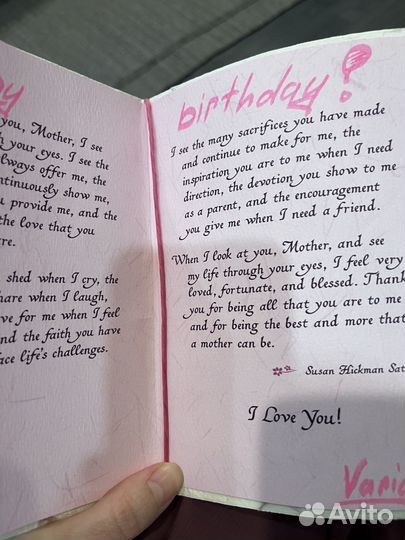 you, Mother, I see
your eyes. I see the
always offer me, the
continuously show me,
provide me, and the
the love that you
shed when I cry, the
share when I laugh,
for me when I feel
and the faith you have
face life's challenges.
birthday!
I see the many sacrifices you have made
and continue to make for me, the
inspiration you are to me when I need
direction, the devotion you show to me
as a parent, and the encouragement
you give me when I need a friend.
When I look at you, Mother, and see
my life through your eyes, I feel very
loved, fortunate, and blessed. Thank
you for being all that you are to me
and for being the best and more that
a mother can be.
Susan Hickman
I Love You!
Avito